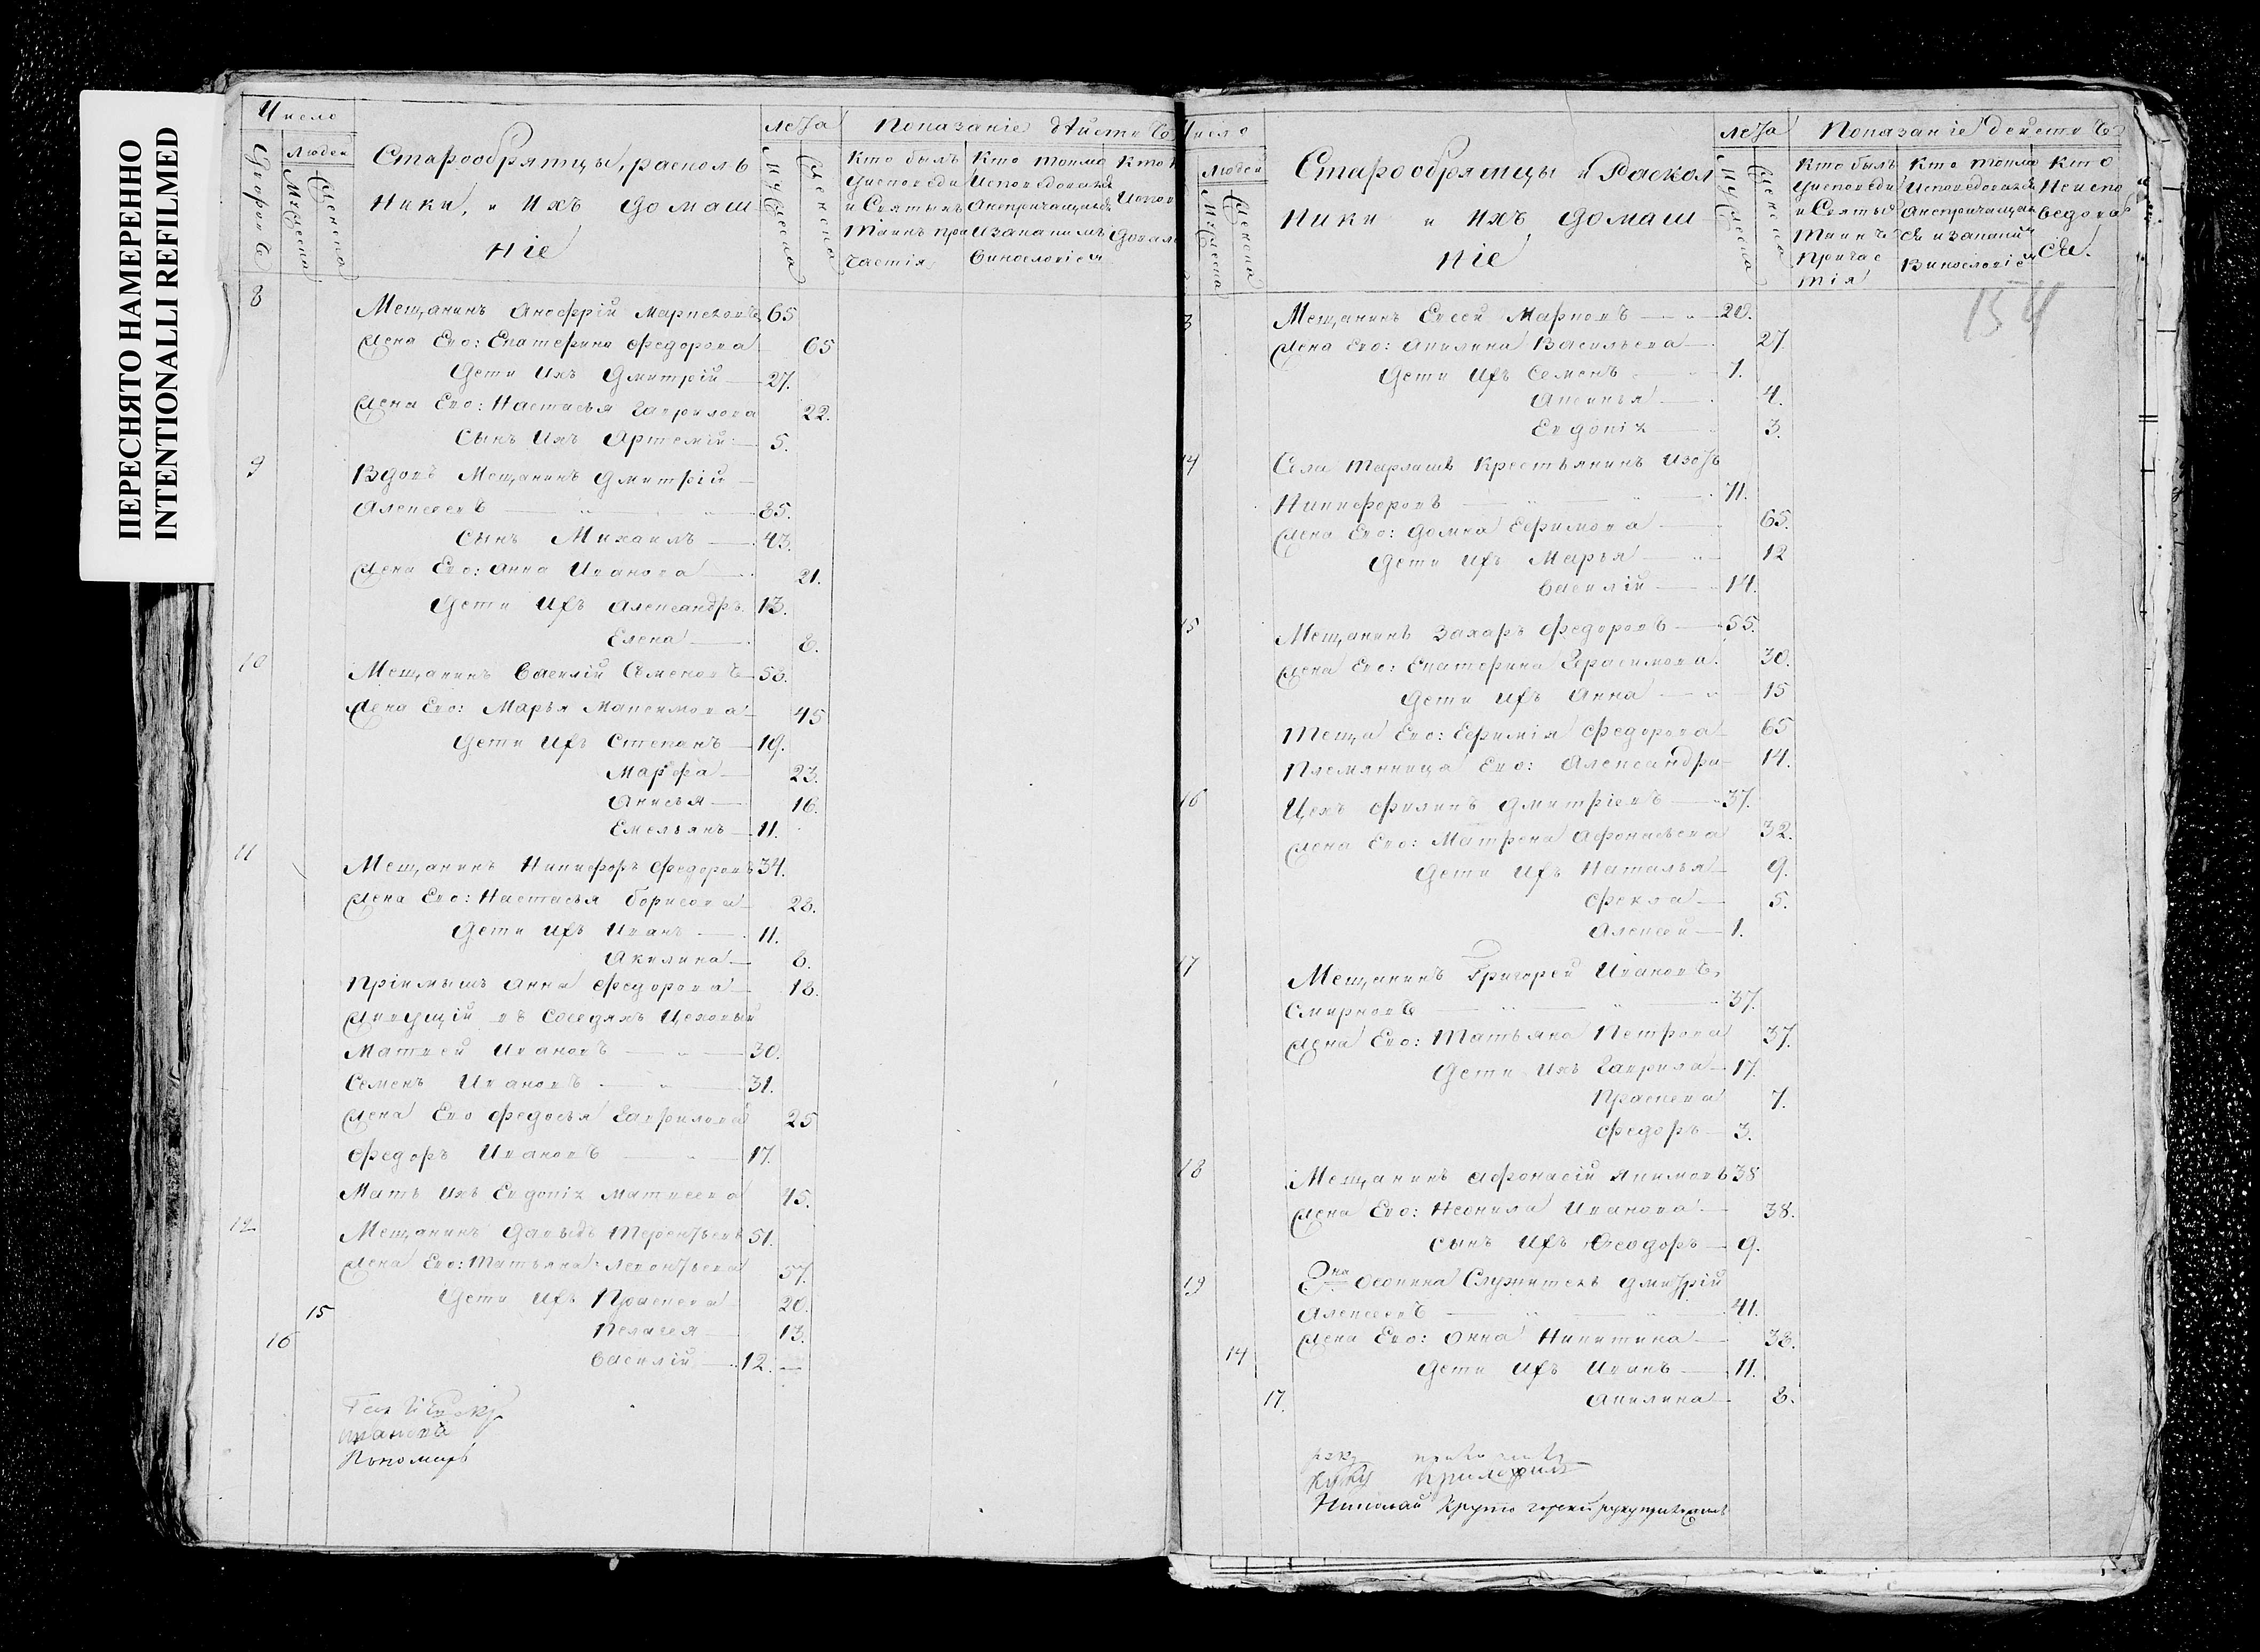 ПЕРЕСНЯТО НАМЕРЕННО
INTENTIONALLI REFILMED
Число
Дворовъ
Людей
Мужеска
Женска
Старообрятцы, расколь
ники, и ихъ домаш
ніе
лета
Мужеска
Женска
Показаніе действъ
Кто былъ
у исповеди
и Святыхъ
Таинъ при
частія
Кто токмо
исповедовался
а непричащался
и за какимъ
винословіем
Кто н
испов
довал
8
Мещанинъ Анофрій Марковъ 65
Жена Его: Екатерина Федорова 65
Дети ихъ Дмитрій 27.
Жена Его: Настасья Гаврилова 22.
Сынъ ихъ Артемій 5.
9
Вдовъ Мещанинъ Дмитрій
Алексеевъ 85.
Сынъ Михаилъ 43.
Жена Его: Анна Иванова 21.
Дети ихъ Александръ 13.
Елена 8.
10
Мещанинъ Василій Семеновъ 53.
Жена Его: Марья Максимова 45
Дети ихъ Степанъ 19.
Марфа 23.
Анисья 16.
Емельянъ 11.
11
Мещанинъ Никифоръ Федоровъ 34.
Жена Его: Настасья Борисова 28.
Дети ихъ Иванъ 11.
Акилина 8.
Пріимышъ Анна Федорова 18.
Живущій въ соседяхъ Цеховый
Матвей Ивановъ 30.
Семенъ Ивановъ 31.
Жена Его Федосья Гаврилова 25
Федоръ Ивановъ 17.
Мать ихъ Евдокія Матвеева 45.
12
Мещанинъ Давыдъ Терентьевъ 51.
Жена Его: Татьяна Леонтьева 57.
Дети ихъ Праскева 20.
15
Пелагея 13.
16
Василій 12.
Пономарь
Число
Людей
Мужеска
Женска
Старообрятцы и Раскол
ники и ихъ домаш
ніе
лета
Мужеска
Женска
Показаніе действъ
Кто былъ
у исповеди
и Святыхъ
Таинъ
причас
тія
Кто токмо
исповедовался
а непричащал
ся и за какимъ
винословіем
Кто
неиспо
ведовал
ся.
154
3
Мещанинъ Евсей Марковъ 28.
Жена Его: Акилина Васильева 27.
Дети ихъ Семенъ 1.
Аксинья 4.
Евдокія 3.
14
Села Тарлашъ Крестьянинъ Изотъ
Никифоровъ 71.
Жена Его: Домна Ефимова 65.
Дети ихъ Марья 12
Василій 14.
15
Мещанинъ Захаръ Федоровъ 55.
Жена Его: Екатерина Герасимова 30.
Дети ихъ Анна 15
Теща Его: Ефимія Федорова 65
Племянница Его: Александра 14.
16
Цехъ Филипъ Дмитріевъ 37.
Жена Его: Матрена Афонасьева 32.
Дети ихъ Наталья 9.
Фекла 5.
Алексей 1.
17
Мещанинъ Григорей Ивановъ
Смирновъ 37.
Жена Его: Татьяна Петрова 37.
Дети ихъ Гаврила 17.
Праскева 7.
Федоръ 3.
18
Мещанинъ Афонасій Якимовъ 38
Жена Его: Неонила Иванова 38.
Сынъ ихъ Феодоръ 9.
19
Служитель Дмитрій
Алексеевъ 41.
Жена Его: Анна Никитина 38.
14
Дети ихъ Иванъ 11.
17.
Акилина 8.
Николай